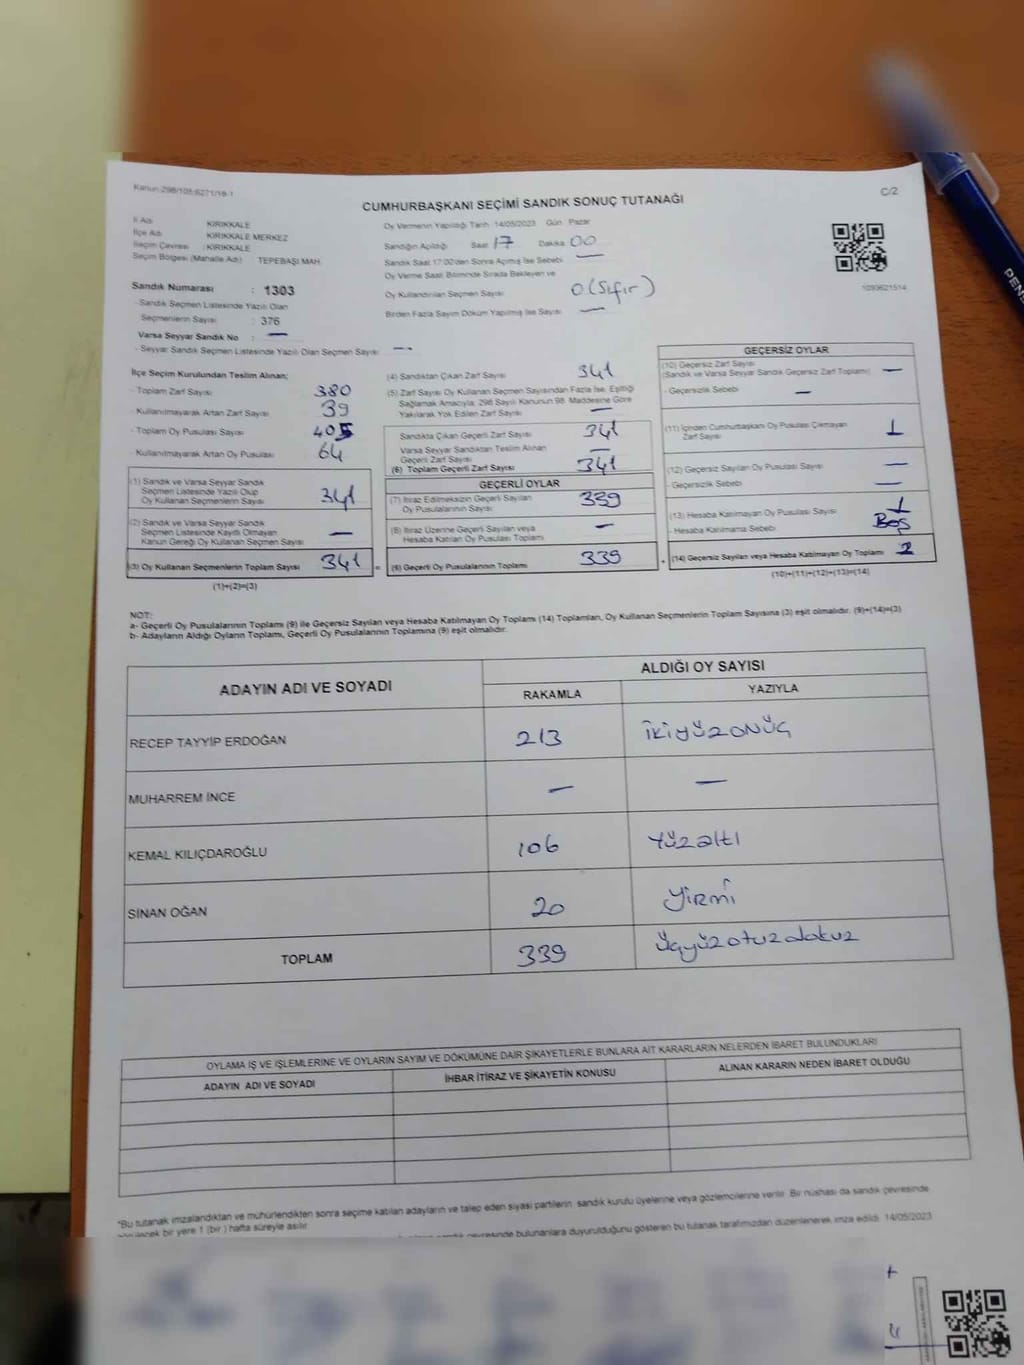 Kanun:298/105;6271/16-1
C/2
CUMHURBAŞKANI SEÇİMİ SANDIK SONUÇ TUTANAĞI
İl Adı : KIRIKKALE
İlçe Adı : KIRIKKALE MERKEZ
Seçim Çevresi : KIRIKKALE
Seçim Bölgesi (Mahalle Adı) : TEPEBAŞI MAH.
Sandık Numarası : 1303
- Sandık Seçmen Listesinde Yazılı Olan
Seçmenlerin Sayısı : 376
Varsa Seyyar Sandık No : —
- Seyyar Sandık Seçmen Listesinde Yazılı Olan Seçmen Sayısı : —
Oy Vermenin Yapıldığı Tarih :14/05/2023 Gün : Pazar
Sandığın Açıldığı Saat 17 Dakika 00
Sandık Saat 17:00'den Sonra Açılmış İse Sebebi —
Oy Verme Saati Bitiminde Sırada Bekleyen ve
Oy Kullandırılan Seçmen Sayısı 0 (Sıfır)
Birden Fazla Sayım Döküm Yapılmış İse Sayısı —
1093621514
İlçe Seçim Kurulundan Teslim Alınan;
- Toplam Zarf Sayısı 380
- Kullanılmayarak Artan Zarf Sayısı 39
- Toplam Oy Pusulası Sayısı 405
- Kullanılmayarak Artan Oy Pusulası 64
(1) Sandık ve Varsa Seyyar Sandık
Seçmen Listesinde Yazılı Olup
Oy Kullanan Seçmenlerin Sayısı 341
(2) Sandık ve Varsa Seyyar Sandık
Seçmen Listesinde Kayıtlı Olmayan
Kanun Gereği Oy Kullanan Seçmen Sayısı —
(3) Oy Kullanan Seçmenlerin Toplam Sayısı 341 =
(1)+(2)=(3)
(4) Sandıktan Çıkan Zarf Sayısı 341
(5) Zarf Sayısı Oy Kullanan Seçmen Sayısından Fazla İse, Eşitliği
Sağlamak Amacıyla, 298 Sayılı Kanunun 98. Maddesine Göre
Yakılarak Yok Edilen Zarf Sayısı —
Sandıkta Çıkan Geçerli Zarf Sayısı 341
Varsa Seyyar Sandıktan Teslim Alınan
Geçerli Zarf Sayısı —
(6) Toplam Geçerli Zarf Sayısı 341
GEÇERLİ OYLAR
(7) İtiraz Edilmeksizin Geçerli Sayılan
Oy Pusulalarının Sayısı 339
(8) İtiraz Üzerine Geçerli Sayılan veya
Hesaba Katılan Oy Pusulası Toplamı —
(9) Geçerli Oy Pusulalarının Toplamı 339 +
GEÇERSİZ OYLAR
(10) Geçersiz Zarf Sayısı
(Sandık ve Varsa Seyyar Sandık Geçersiz Zarf Toplamı) —
- Geçersizlik Sebebi —
(11) İçinden Cumhurbaşkanı Oy Pusulası Çıkmayan
Zarf Sayısı 1
(12) Geçersiz Sayılan Oy Pusulası Sayısı —
- Geçersizlik Sebebi —
(13) Hesaba Katılmayan Oy Pusulası Sayısı 1
- Hesaba Katılmama Sebebi Boş
(14) Geçersiz Sayılan veya Hesaba Katılmayan Oy Toplamı 2
(10)+(11)+(12)+(13)=(14)
NOT:
a- Geçerli Oy Pusulalarının Toplamı (9) ile Geçersiz Sayılan veya Hesaba Katılmayan Oy Toplamı (14) Toplamları, Oy Kullanan Seçmenlerin Toplam Sayısına (3) eşit olmalıdır. (9)+(14)=(3)
b- Adayların Aldığı Oyların Toplamı, Geçerli Oy Pusulalarının Toplamına (9) eşit olmalıdır.
ADAYIN ADI VE SOYADI ALDIĞI OY SAYISI
RAKAMLA YAZIYLA
RECEP TAYYİP ERDOĞAN 213 ikiyüzonüç
MUHARREM İNCE — —
KEMAL KILIÇDAROĞLU 106 yüzaltı
SİNAN OĞAN 20 yirmi
TOPLAM 339 üçyüzotuzdokuz
OYLAMA İŞ VE İŞLEMLERİNE VE OYLARIN SAYIM VE DÖKÜMÜNE DAİR ŞİKAYETLERLE BUNLARA AİT KARARLARIN NELERDEN İBARET BULUNDUKLARI
ADAYIN ADI VE SOYADI İHBAR İTİRAZ VE ŞİKAYETİN KONUSU ALINAN KARARIN NEDEN İBARET OLDUĞU
*Bu tutanak imzalandıktan ve mühürlendikten sonra seçime katılan adayların ve talep eden siyasi partilerin sandık kurulu üyelerine veya gözlemcilerine verilir. Bir nüshası da sandık çevresinde
görülecek bir yere 1 (bir) hafta süreyle asılır.
çevresinde bulunanlara duyurulduğunu gösteren bu tutanak tarafımızdan düzenlenerek imza edildi. 14/05/2023
PENS